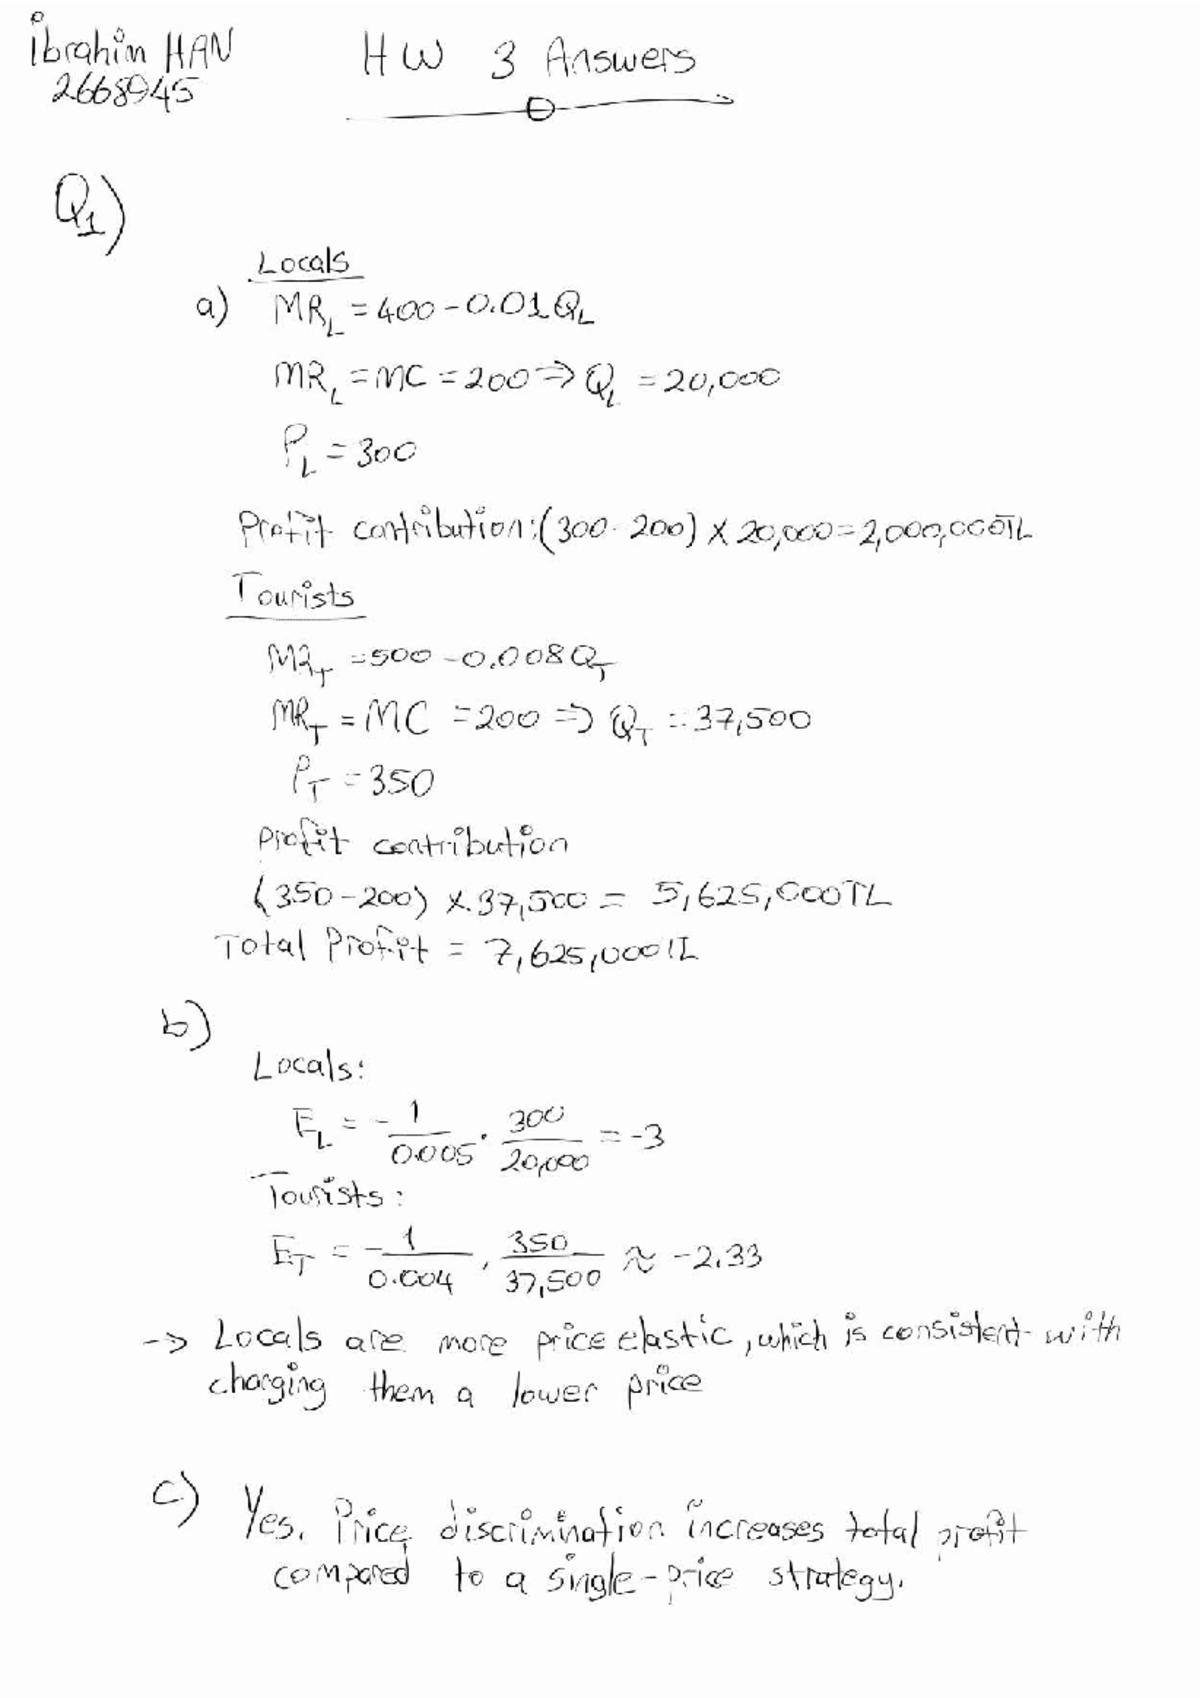 İbrahim HAN
HW 3 Answers
2668945
Q1)
Locals
a) MR_L = 400 - 0.01Q_L
MR_L = MC = 200 => Q_L = 20,000
P_L = 300
Profit contribution: (300 - 200) x 20,000 = 2,000,000TL
Tourists
MR_T = 500 - 0.008Q_T
MR_T = MC = 200 => Q_T = 37,500
P_T = 350
Profit contribution
(350 - 200) x 37,500 = 5,625,000TL
Total Profit = 7,625,000TL
b)
Locals:
E_L = - 1/0.005 . 300/20,000 = -3
Tourists:
E_T = - 1/0.004 . 350/37,500 ≈ -2.33
-> Locals are more price elastic, which is consistent with
charging them a lower price
c) Yes. Price discrimination increases total profit
compared to a single-price strategy.